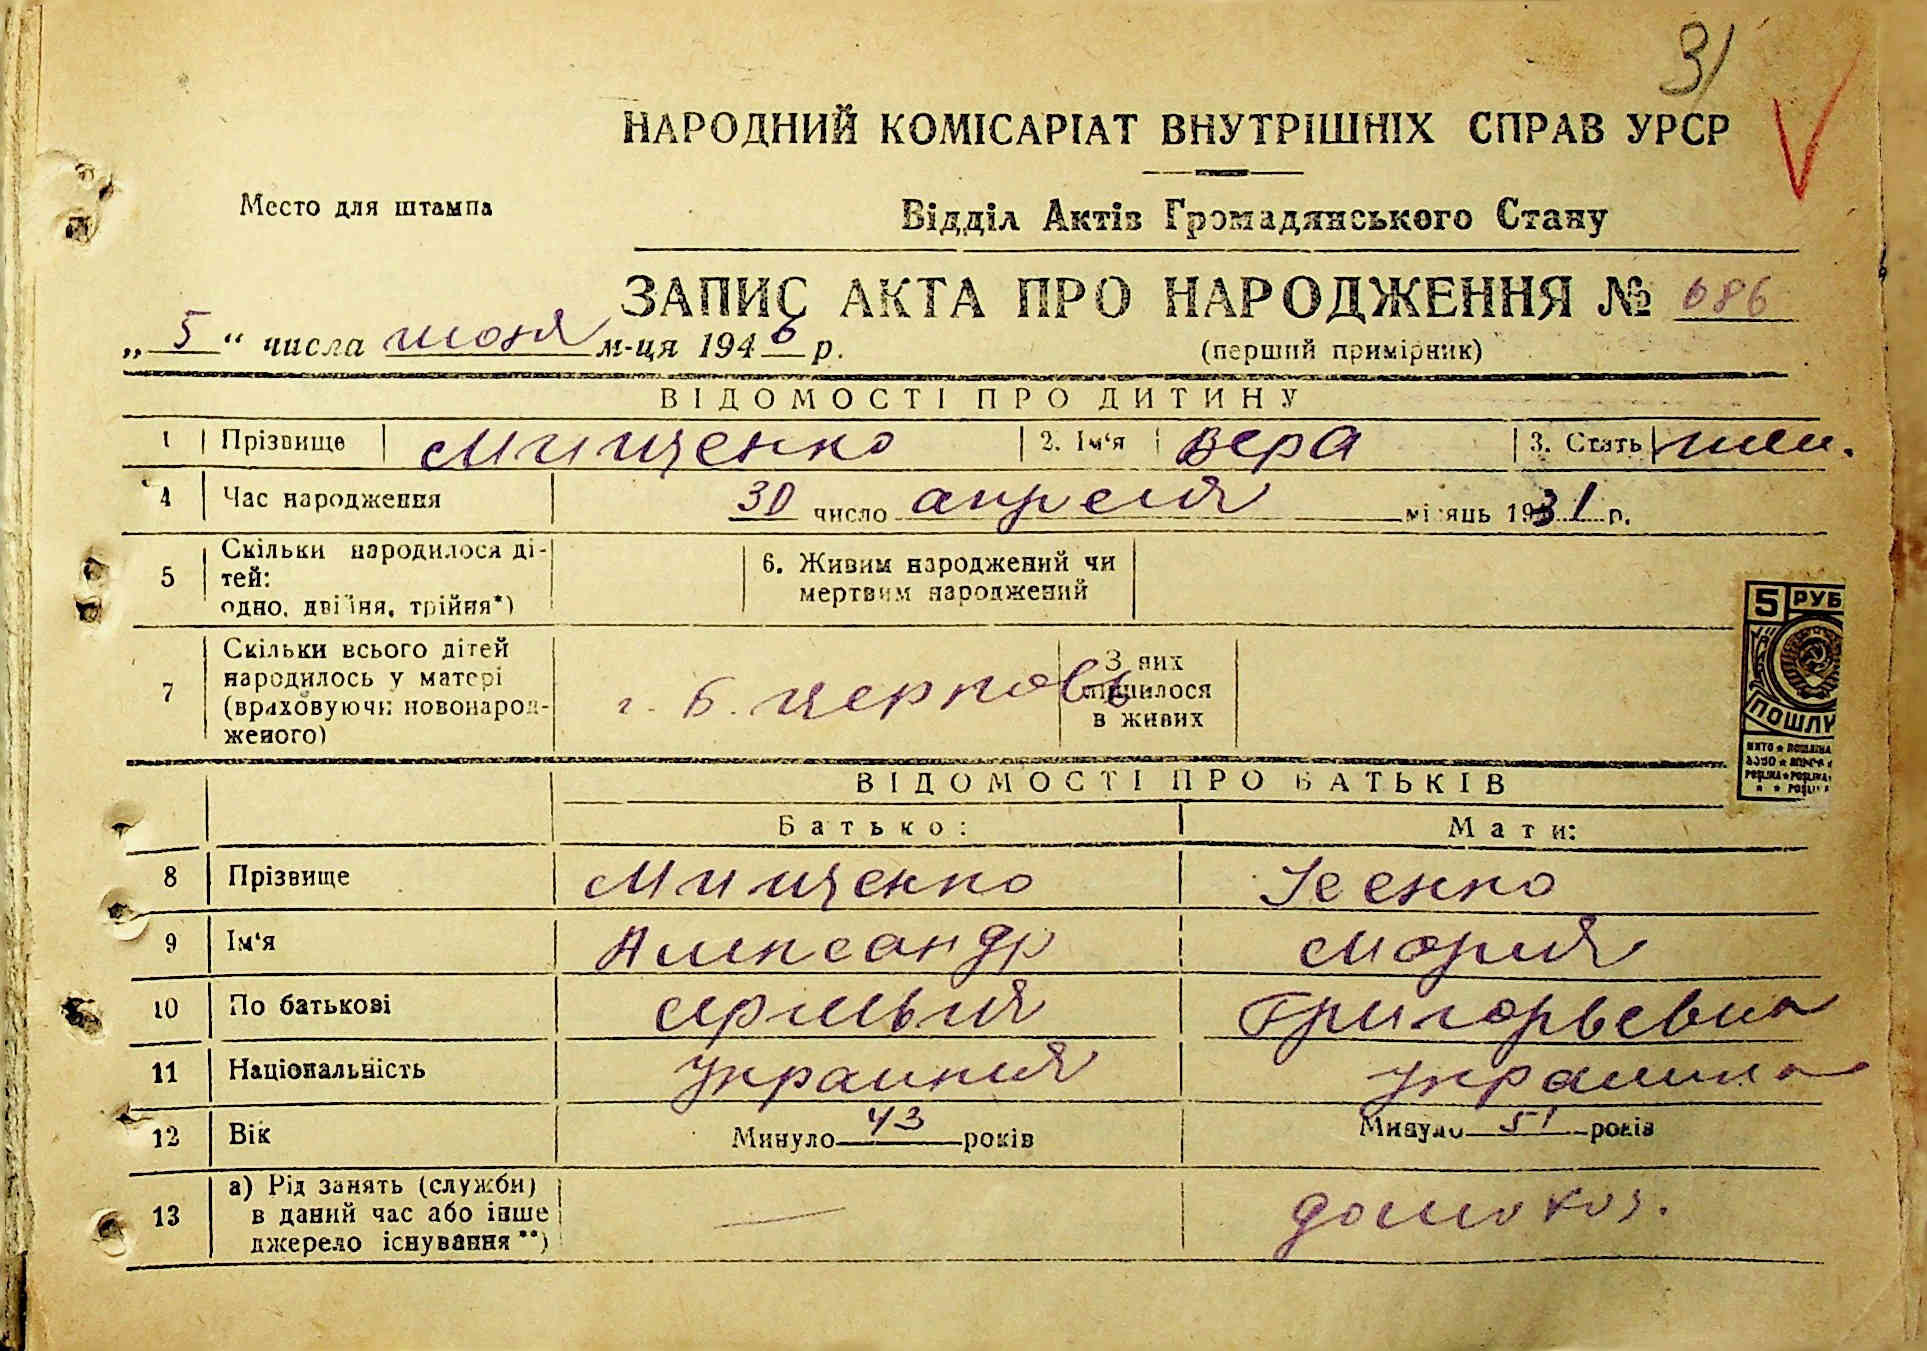 31
НАРОДНИЙ КОМІСАРІАТ ВНУТРІШНІХ СПРАВ УРСР
Место для штампа
Відділ Актів Громадянського Стану
ЗАПИС АКТА ПРО НАРОДЖЕННЯ № 686
„ 5 " числа июня м-ця 1946 р.
(перший примірник)
ВІДОМОСТІ ПРО ДИТИНУ
1 Прізвище Мищенко 2. Ім'я Вера 3. Стать жен.
4 Час народження 30 число апреля місяць 1931 р.
5 Скільки народилося ді-
тей:
одно, двійня, трійня*)
6. Живим народжений чи
мертвим народжений
7 Скільки всього дітей
народилось у матері
(враховуючи новонарод-
женого)
г. Б. Церковь
З них
лишилося
в живих
5 РУБ
ПОШЛ
ВІДОМОСТІ ПРО БАТЬКІВ
Батько: Мати:
8 Прізвище Мищенко Усенко
9 Ім'я Александр Мария
10 По батькові Григорьевна
11 Національність украинец украинка
12 Вік Минуло 43 років Минуло 51 років
13 а) Рід занять (служби)
в даний час або інше
джерело існування **)
— домохоз.